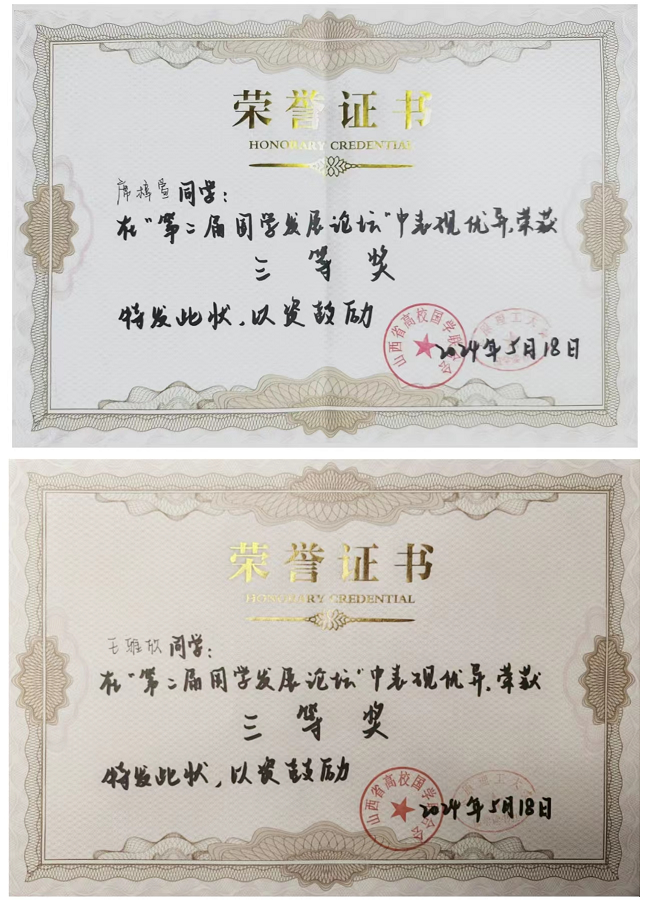 荣誉证书
HONORARY CREDENTIAL
席梓萱同学：
在“第二届国学发展论坛”中表现优异，荣获
三等奖
特发此状，以资鼓励
山西省高校国学联合会
2024年5月18日
荣誉证书
HONORARY CREDENTIAL
王雅欣同学：
在“第二届国学发展论坛”中表现优异，荣获
三等奖
特发此状，以资鼓励
山西省高校国学联合会
2024年5月18日